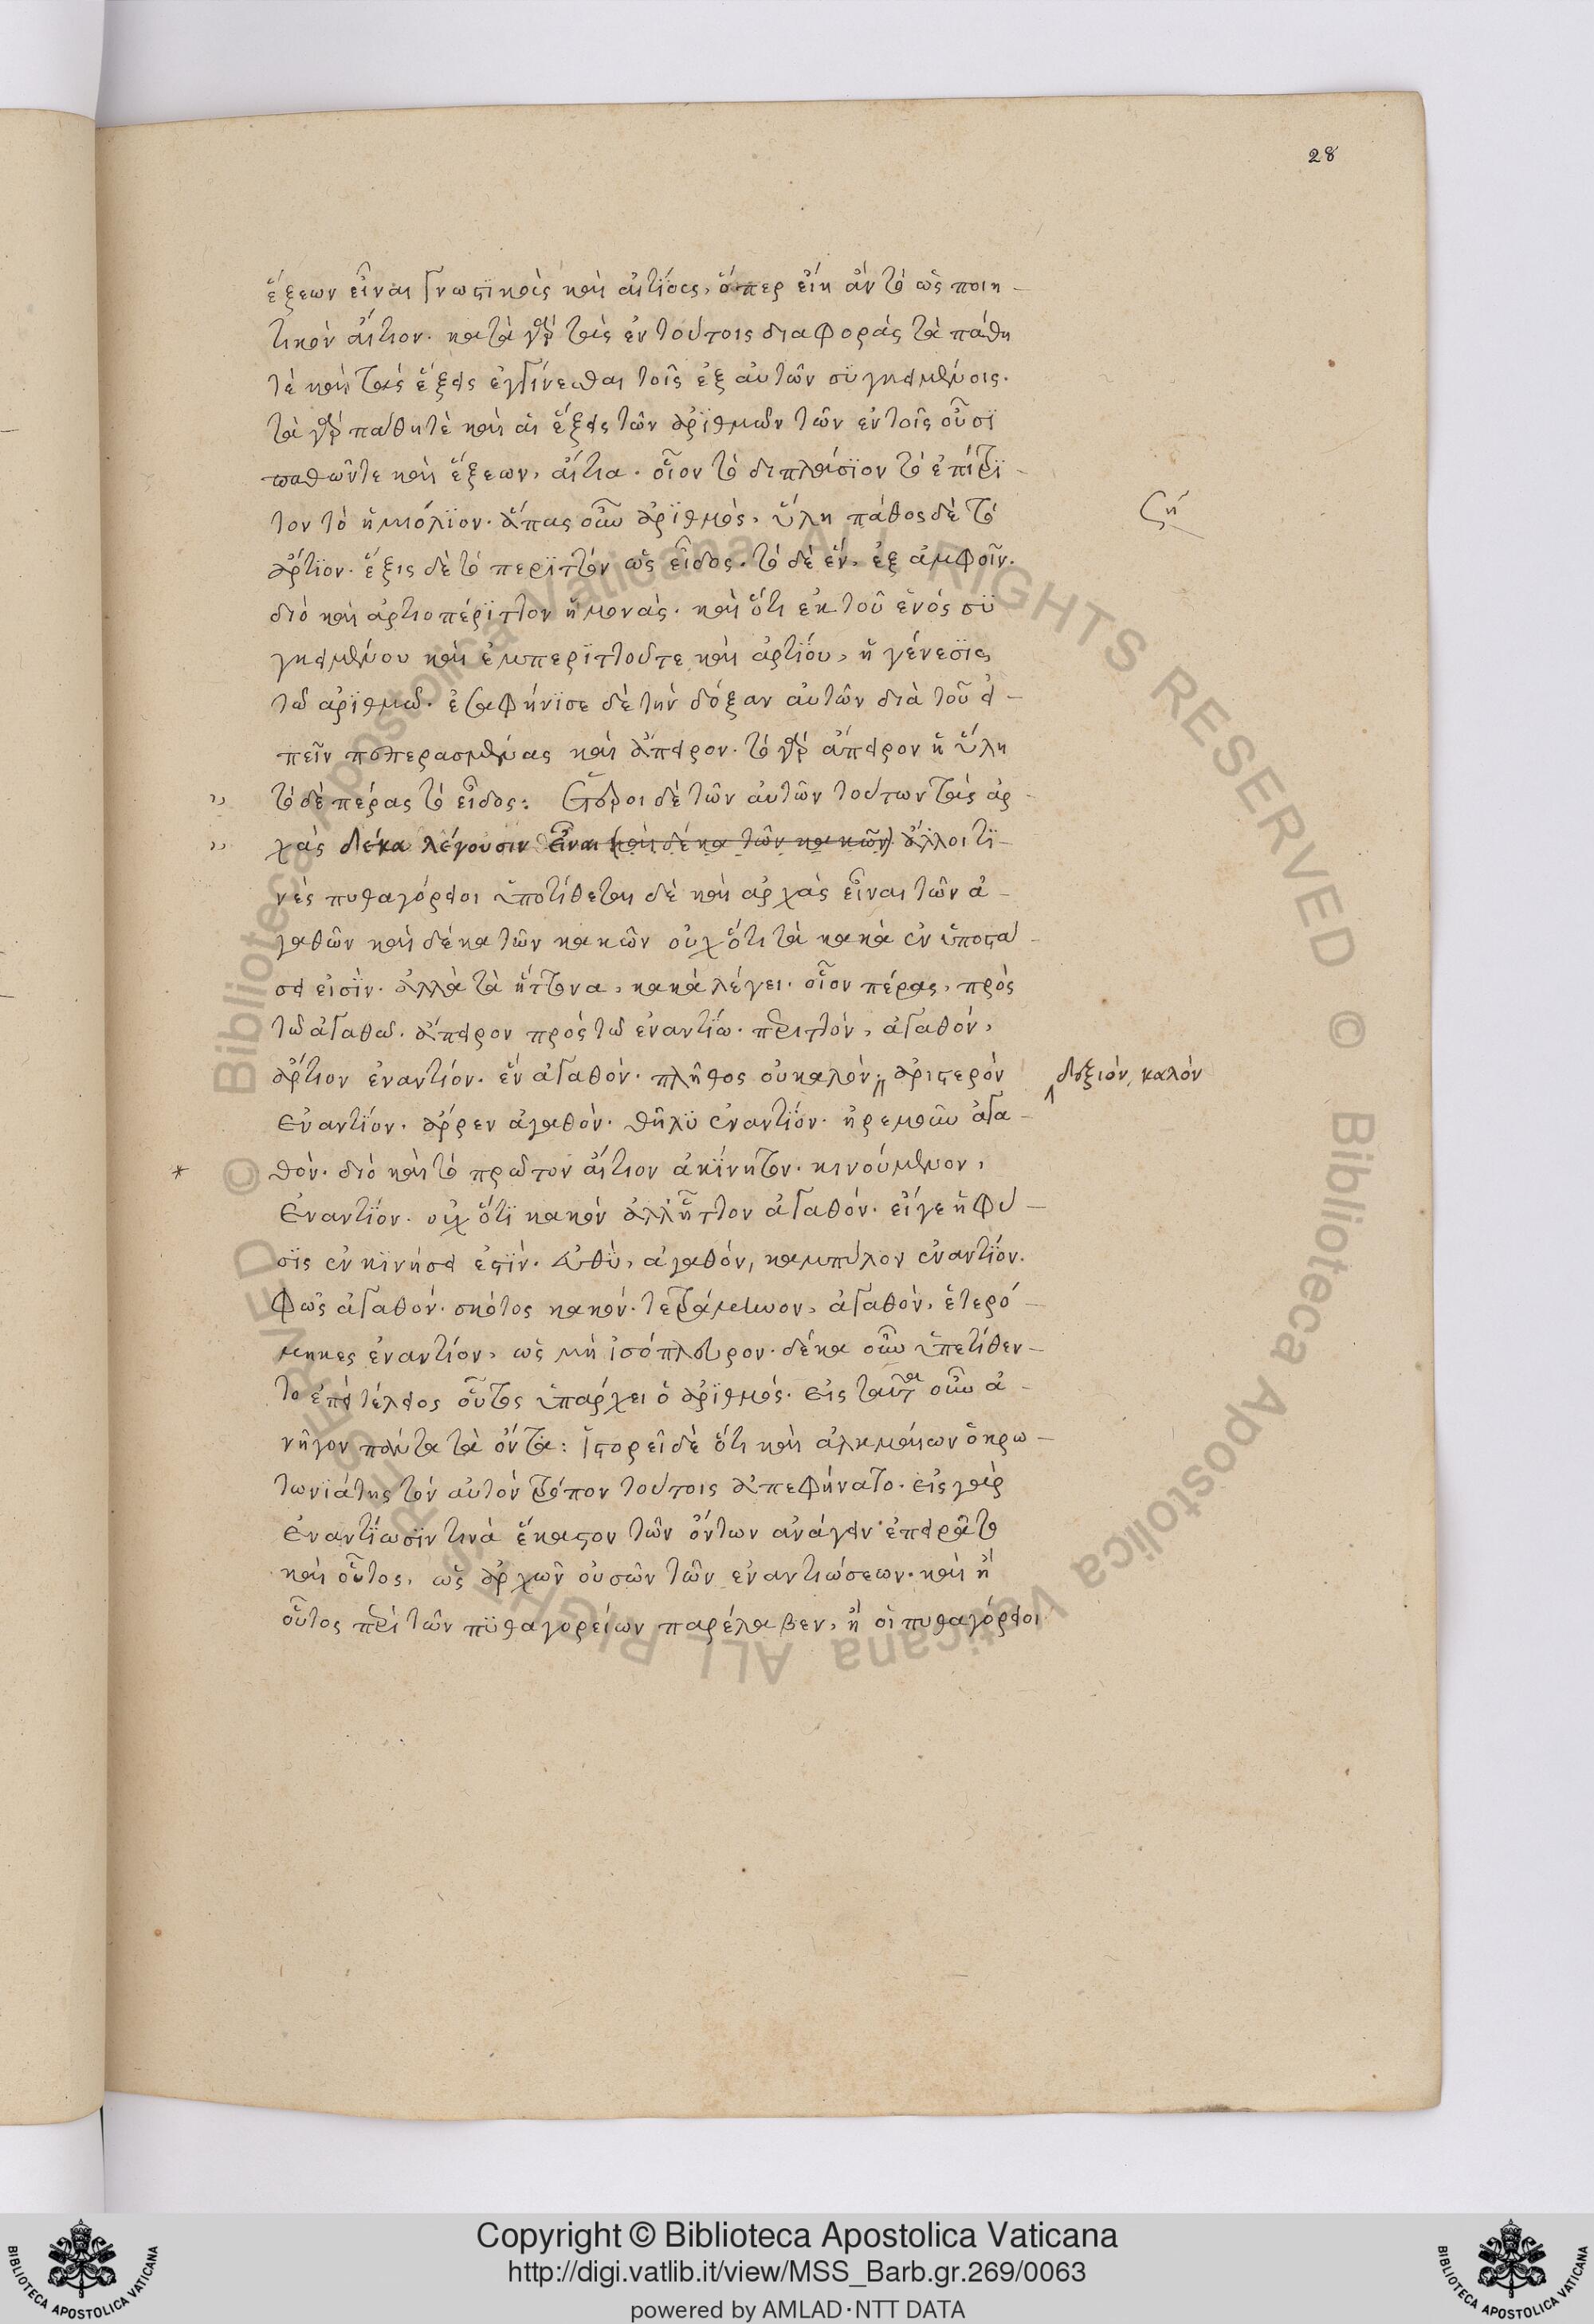 28
ἕξεων εἶναι γνωστικὰς καὶ αἰτίας, ὅπερ εἴη ἂν τὸ ὡς ποιη-
τικὸν αἴτιον. κατὰ γὰρ τὰς ἐν τούτοις διαφορὰς τὰ πάθη
τὲ καὶ τὰς ἕξεις ἐγγίνεσθαι τοῖς ἐξ αὐτῶν συγκειμένοις.
τὰ γὰρ πάθη τὲ καὶ αἱ ἕξεις τῶν ἀριθμῶν τῶν ἐν τοῖς οὖσϊ
παθῶν τε καὶ ἕξεων, αἴτια. οἷον τὸ διπλάσϊον τὸ ἐπίτρϊ-
τον τὸ ἡμιόλϊον. ἅπας οὖν ἀρϊθμὸς, ὕλη πάθος δὲ τὸ
ἄρτϊον. ἕξις δὲ τὸ περϊττὸν ὡς εἶδος. τὸ δὲ ἓν, ἐξ ἀμφοῖν.
διὸ καὶ ἀρτιοπέριττον ἡ μονάς. καὶ ὅτι ἐκ τοῦ ἑνὸς συ
γκειμένου καὶ ἐμπερϊττοῦ τε καὶ ἀρτϊου, ἡ γένεσϊς
τῶ ἀρϊθμῶ. ἐσαφήνϊσε δὲ τὴν δόξαν αὐτῶν διὰ τοῦ εἰ-
πεῖν πεπερασμένας καὶ ἄπειρον. τὸ γὰρ ἄπειρον ἡ ὕλη
τὸ δὲ πέρας τὸ εἶδος: ἕτεροι δὲ τῶν αὐτῶν τούτων τὰς ἀρ-
χὰς δέκα λέγουσιν εἶναι (καὶ δέκα τῶν κακῶν) ἄλλοι τϊ-
νὲς πυθαγόρειοι ὑποτίθεται δὲ καὶ ἀρχὰς εἶναι τῶν ἀ-
γαθῶν καὶ δέκα τῶν κακῶν οὐχ ὅτι τὰ κακὰ ἐν ὑποστά-
σει εἰσϊν. ἀλλὰ τὰ ἥττονα, κακὰ λέγει. οἷον πέρας, πρὸς
τῶ ἀγαθῶ. ἄπειρον πρὸς τῶ ἐναντίω. περιττὸν, ἀγαθόν,
ἄρτιον ἐναντίον. ἓν ἀγαθὸν. πλῆθος οὐ καλὸν· ἀριστερὸν
δεξιόν, καλόν
ἐναντίον. ἄρρεν ἀγαθὸν. θῆλυ ἐναντίον. ἠρεμοῦν ἀγα-
θὸν. διὸ καὶ τὸ πρῶτον αἴτιον ἀκίνητον. κινούμενον,
ἐναντίον. οὐχ ὅτι κακὸν ἀλλ' ἧττον ἀγαθόν. εἴγε ἡ φύ-
σϊς ἐν κϊνήσει ἐστίν. εὐθὺ, ἀγαθόν, καμπύλον ἐναντϊον.
φῶς ἀγαθὸν. σκότος κακόν. τετράγωνον, ἀγαθὸν, ἑτερό-
μηκες ἐναντίον, ὡς μὴ ἰσόπλευρον. δέκα οὖν ὑπετίθεν-
το ἐπεὶ τέλειος οὗτος ὑπάρχει ὁ ἀρϊθμός. εἰς ταῦτα οὖν ἀ-
νῆγον πάντα τὰ ὄντα: ἱστορεῖ δὲ ὅτι καὶ ἀλκμαίων ὁ κρω-
τωνϊάτης τὸν αὐτὸν τρόπον τούτοις ἀπεφήνατο. εἰς γὰρ
ἐναντϊωσϊν τινὰ ἕκαστον τῶν ὄντων ἀνάγειν ἐπειρᾶτο
καὶ οὗτος, ὡς ἀρχῶν οὐσῶν τῶν ἐναντιώσεων. καὶ ἢ
οὗτος περὶ τῶν πϋθαγορείων παρέλαβεν, ἢ οἱ πυθαγόρειοι
Copyright © Biblioteca Apostolica Vaticana
http://digi.vatlib.it/view/MSS_Barb.gr.269/0063
powered by AMLAD·NTT DATA
BIBLIOTECA APOSTOLICA VATICANA
BIBLIOTECA APOSTOLICA VATICANA